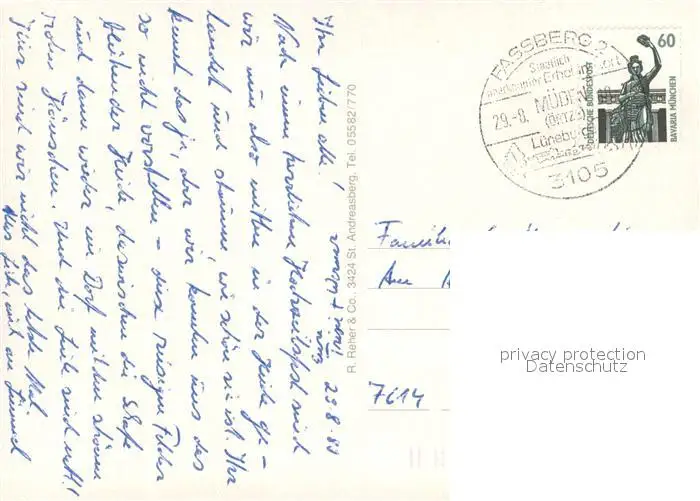 Ihr Lieben alle!
29.8.89
Nach einem herrlichen Hochzeitsfest sind
wir nun also mitten in der Heide ge-
landet und staunen, wie schön sie ist. Ihr
kennt das ja, aber wir konnten uns das
so nicht vorstellen – diese riesigen Felder
blühender Heide, dazwischen die Schafe
und dann wieder ein Dorf mit den schönen
Häuschen. Und die Leute sind nett!!
Hier sind wir nicht das letzte Mal
R. Reher & Co., 3424 St. Andreasberg, Tel. 05582/770
FASSBERG 2
Staatlich
anerkannter Erholungsort
29.-8.
MÜDEN
(ÖRTZE)
Lüneburg
3105
60
DEUTSCHE BUNDESPOST
BAVARIA MÜNCHEN
Am
7614
privacy protection
Datenschutz